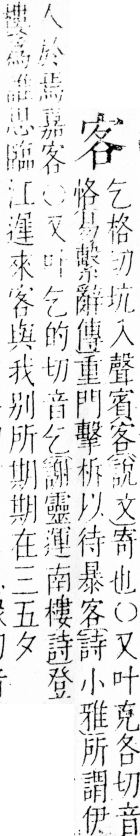 客
乞格切坑入聲賓客說文寄也○又叶克各切音
恪易繫辭傳重門擊柝以待暴客詩小雅所謂伊
人於焉嘉客○又叶乞的切音乞謝靈運南樓詩登
樓為誰思臨江遲來客與我別所期期在三五夕